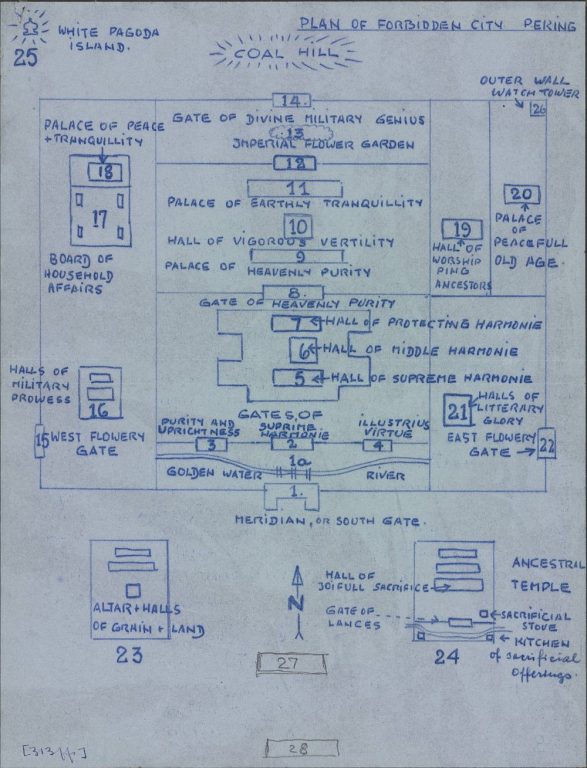 PLAN OF FORBIDDEN CITY PEKING
WHITE PAGODA
ISLAND.
25
COAL HILL
OUTER WALL
WATCH TOWER
26
14.
GATE OF DIVINE MILITARY GENIUS
13
IMPERIAL FLOWER GARDEN
12
PALACE OF PEACE
+ TRANQUILLITY
18
17
BOARD OF
HOUSEHOLD
AFFAIRS
11
PALACE OF EARTHLY TRANQUILLITY
10
HALL OF VIGOROUS VERTILITY
9
PALACE OF HEAVENLY PURITY
8.
GATE OF HEAVENLY PURITY
19
HALL OF
WORSHIP
PING
ANCESTORS
20
PALACE
OF
PEACEFULL
OLD AGE.
7 HALL OF PROTECTING HARMONIE
6 HALL OF MIDDLE HARMONIE
5 HALL OF SUPREME HARMONIE
HALLS OF
MILITARY
PROWESS
16
15 WEST FLOWERY
GATE
21
HALLS OF
LITTERARY
GLORY
EAST FLOWERY
GATE
22
GATES OF
PURITY AND
UPRICHTNESS
SUPREME
HARMONIE
ILLUSTRIUS
VIRTUE
3
2
4
1a
GOLDEN WATER RIVER
1.
MERIDIAN, OR SOUTH GATE.
ALTAR + HALLS
OF GRAIN + LAND
23
N
HALL OF
JOIFULL SACRIFICE
GATE OF
LANCES
ANCESTRAL
TEMPLE
SACRIFICIAL
STOVE
KITCHEN
of sacrificial
Offerings.
24
27
28
[313 ]